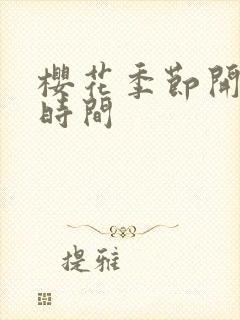 櫻花季節開
時間
提雅